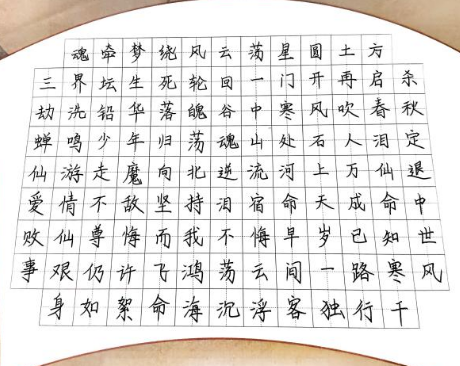 魂牵梦绕风云荡星圆土方
三界坛生死轮回一门开再启杀
劫洗铅华落魄谷中寒风吹春秋
蝉鸣少年归荡魂山处石人泪定
仙游走魔向北逆流河上万仙退
爱情不敌坚持泪宿命天成命中
败仙尊悔而我不悔早岁已知世
事艰仍许飞鸿荡云间一路寒风
身如絮命海沉浮客独行千